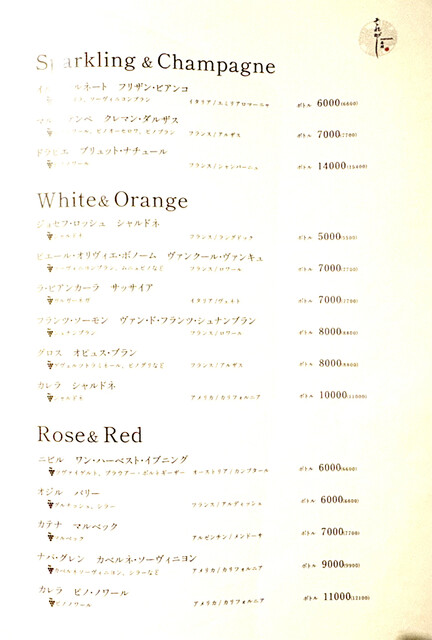 Sparkling & Champagne
ルネート フリザン・ビアンコ
ソーヴィニヨンブラン イタリア/エミリアロマーニャ ボトル 6000(6600)
クレマン・ダルザス
ピノオーセロワ、ピノブラン フランス/アルザス ボトル 7000(7700)
ドゥヒエ ブリュット・ナチュール
ノワール フランス/シャンパーニュ ボトル 14000(15400)
White & Orange
ジョセフ・ロッシュ シャルドネ
シャルドネ フランス/ラングドック ボトル 5000(5500)
ピエール・オリヴィエ・ボノーム ヴァンクール・ヴァンキュ
ソーヴィニヨンブラン、ムニュピノなど フランス/ロワール ボトル 7000(7700)
ラ・ビアンカーラ サッサイア
ガルガーネガ イタリア/ヴェネト ボトル 7000(7700)
フランツ・ソーモン ヴァン・ド・フランツ・シュナンブラン
シュナンブラン フランス/ロワール ボトル 8000(8800)
グロス オピュス・ブラン
ゲヴュルツトラミネール、ピノグリなど フランス/アルザス ボトル 8000(8800)
カレラ シャルドネ
シャルドネ アメリカ/カリフォルニア ボトル 10000(11000)
Rose & Red
ニビル ワン・ハーベスト・イブニング
ツヴァイゲルト、ブラウアー・ポルトギーザー オーストリア/カンプタール ボトル 6000(6600)
オジル バリー
グルナッシュ、シラー フランス/アルディッシュ ボトル 6000(6600)
カテナ マルベック
マルベック アルゼンチン/メンドーサ ボトル 7000(7700)
ナパ・グレン カベルネ・ソーヴィニヨン
カベルネソーヴィニヨン、シラーなど アメリカ/カリフォルニア ボトル 9000(9900)
カレラ ピノ・ノワール
ピノノワール アメリカ/カリフォルニア ボトル 11000(12100)